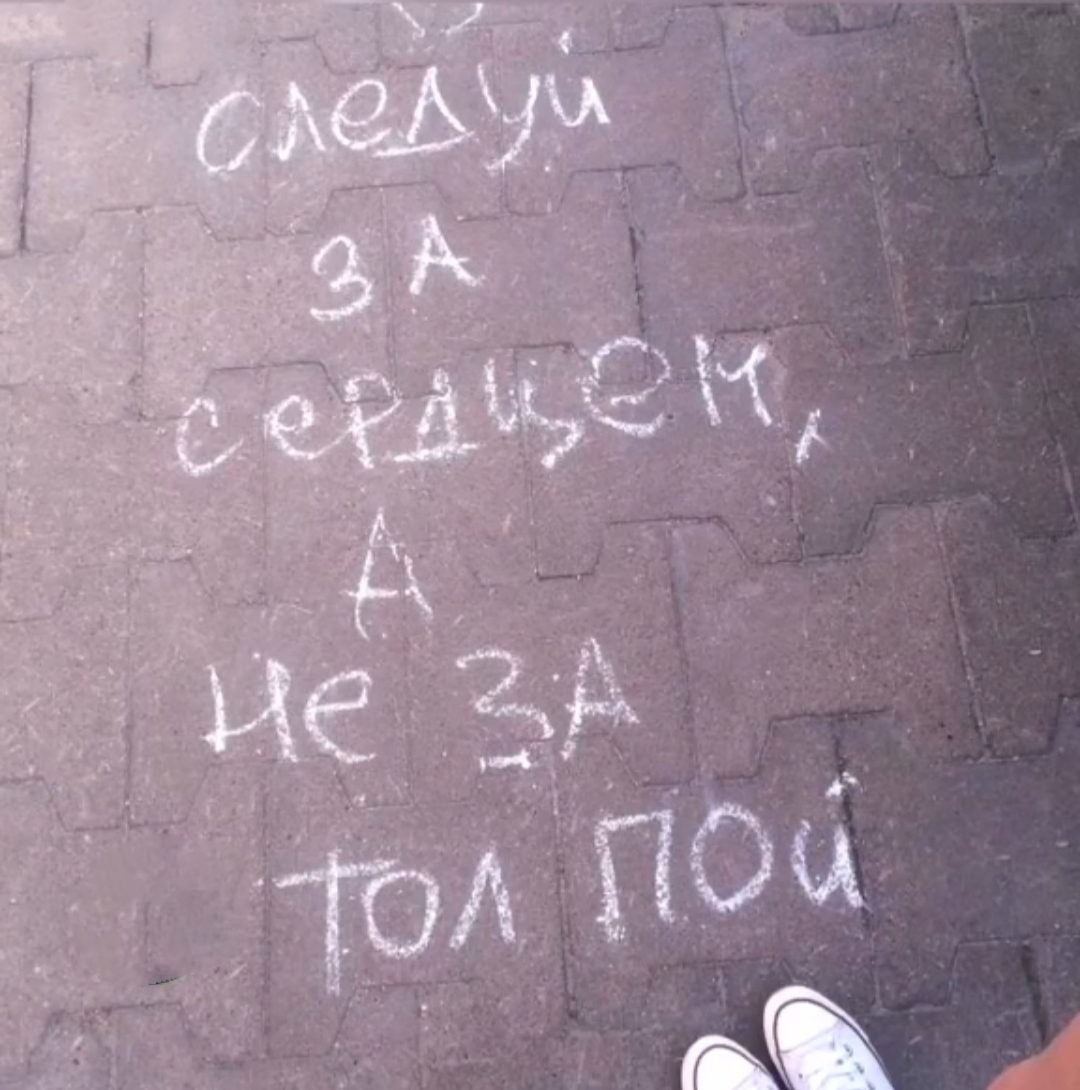 следуй
за
сердцем,
а
не за
толпой